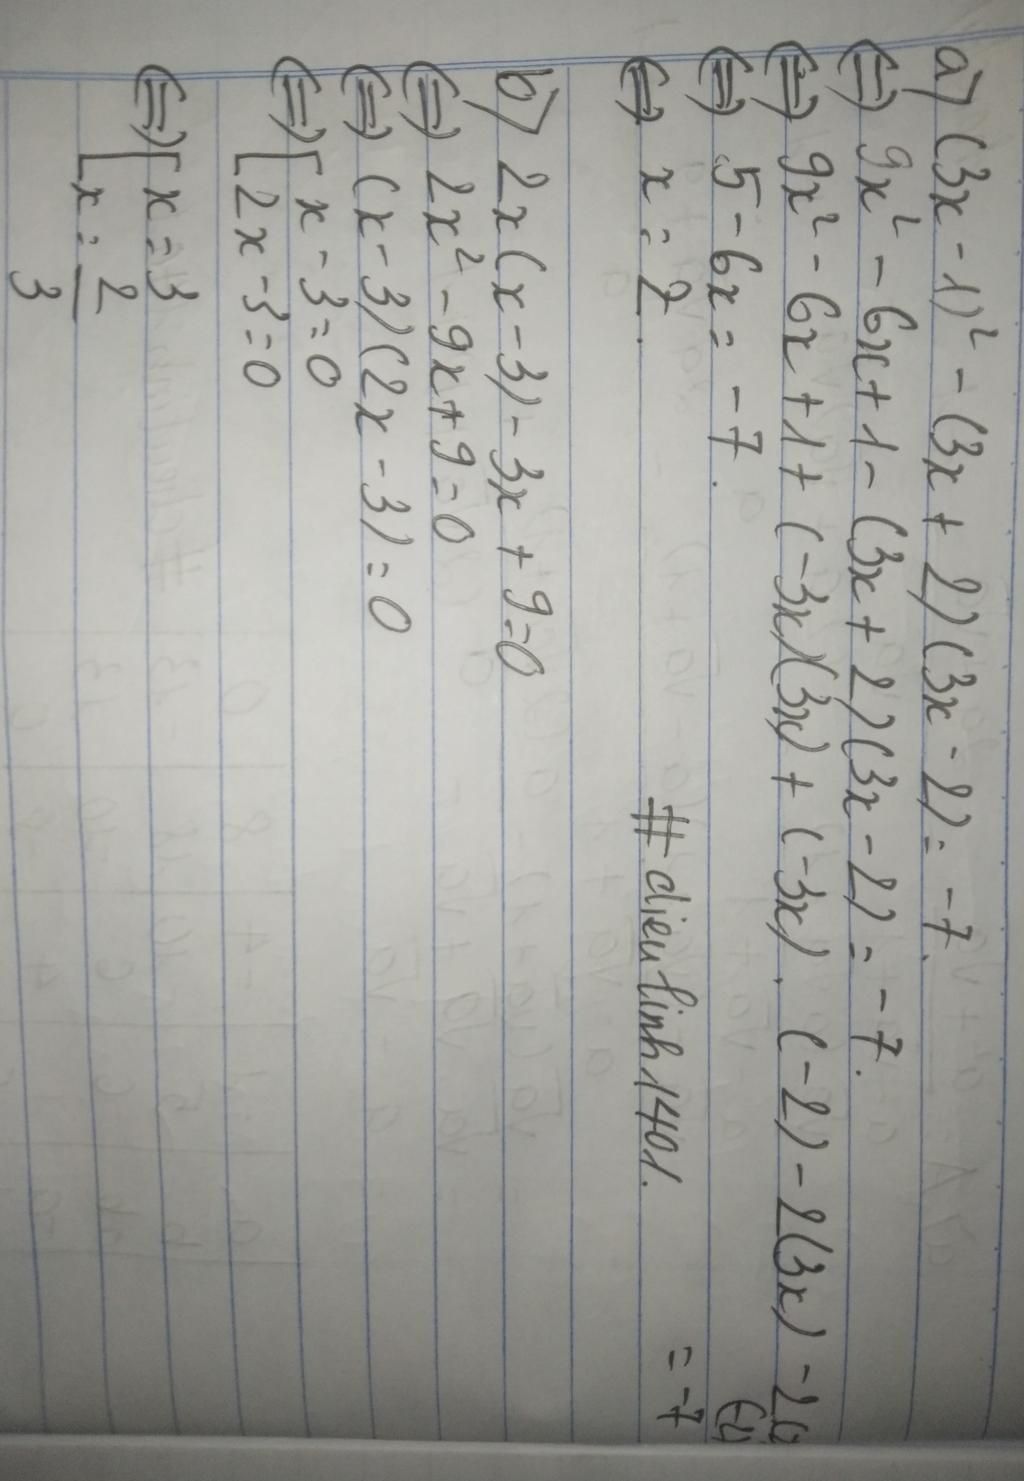 a) (3x - 1)² - (3x + 2)(3x - 2) = -7.
⇔ 9x² - 6x + 1 - (3x + 2)(3x - 2) = -7.
⇔ 9x² - 6x + 1 + (-3x)(3x) + (-3x). (-2) - 2(3x) - 2(
= -7
⇔ 5 - 6x = -7.
⇔ x = 2.
# dieulinh1401.
b) 2x(x - 3) - 3x + 9 = 0
⇔ 2x² - 9x + 9 = 0
⇔ (x - 3)(2x - 3) = 0
⇔ [ x - 3 = 0
[ 2x - 3 = 0
⇔ [ x = 3
[ x = 2/3